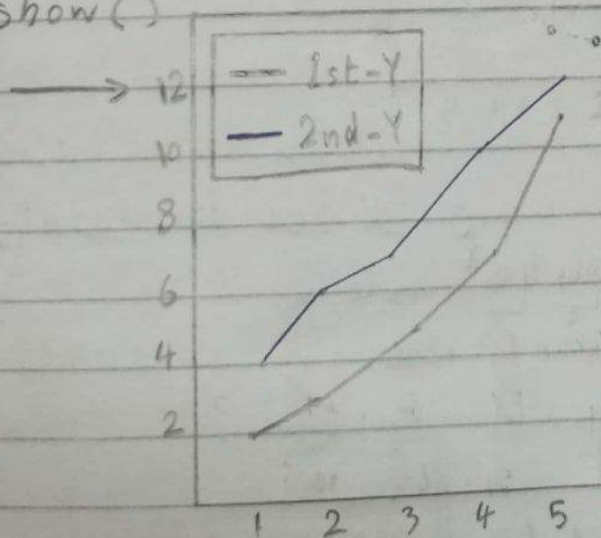 show()
1st-Y
2nd-Y
12
10
8
6
4
2
1 2 3 4 5